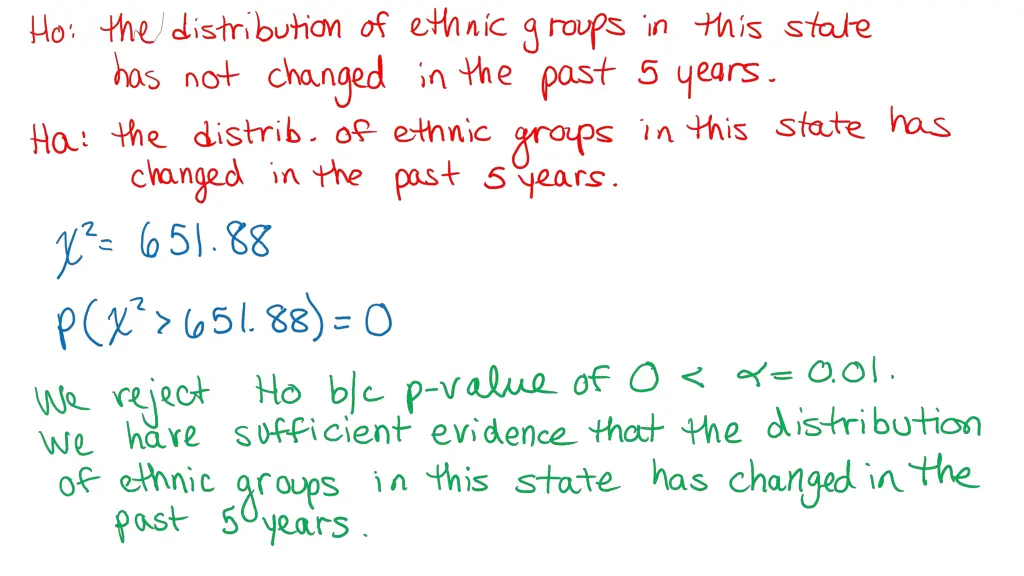 Ho: the distribution of ethnic groups in this state
has not changed in the past 5 years.
Ha: the distrib. of ethnic groups in this state has
changed in the past 5 years.
χ²= 651.88
P(χ²>651.88)=0
We reject Ho b/c p-value of 0 < α=0.01.
We have sufficient evidence that the distribution
of ethnic groups in this state has changed in the
past 5 years.